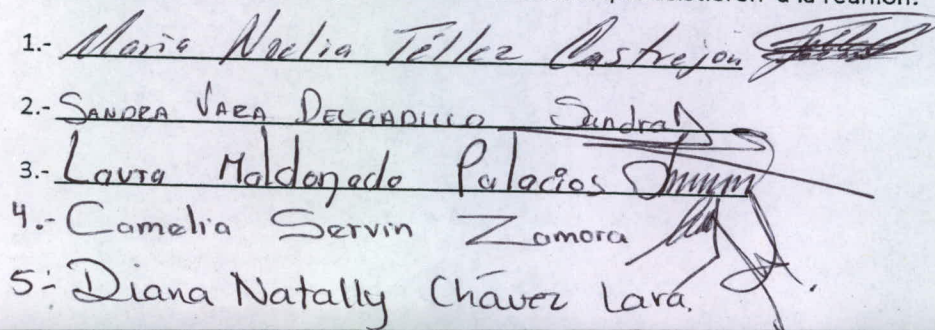 asistieron a la reunión.
1.- Maria Noelia Téllez Castrejon
2.- SANDRA VARA DELGADILLO Sandra
3.- Laura Maldonado Palacios
4.- Camelia Servin Zamora
5.- Diana Natally Chávez Lara.